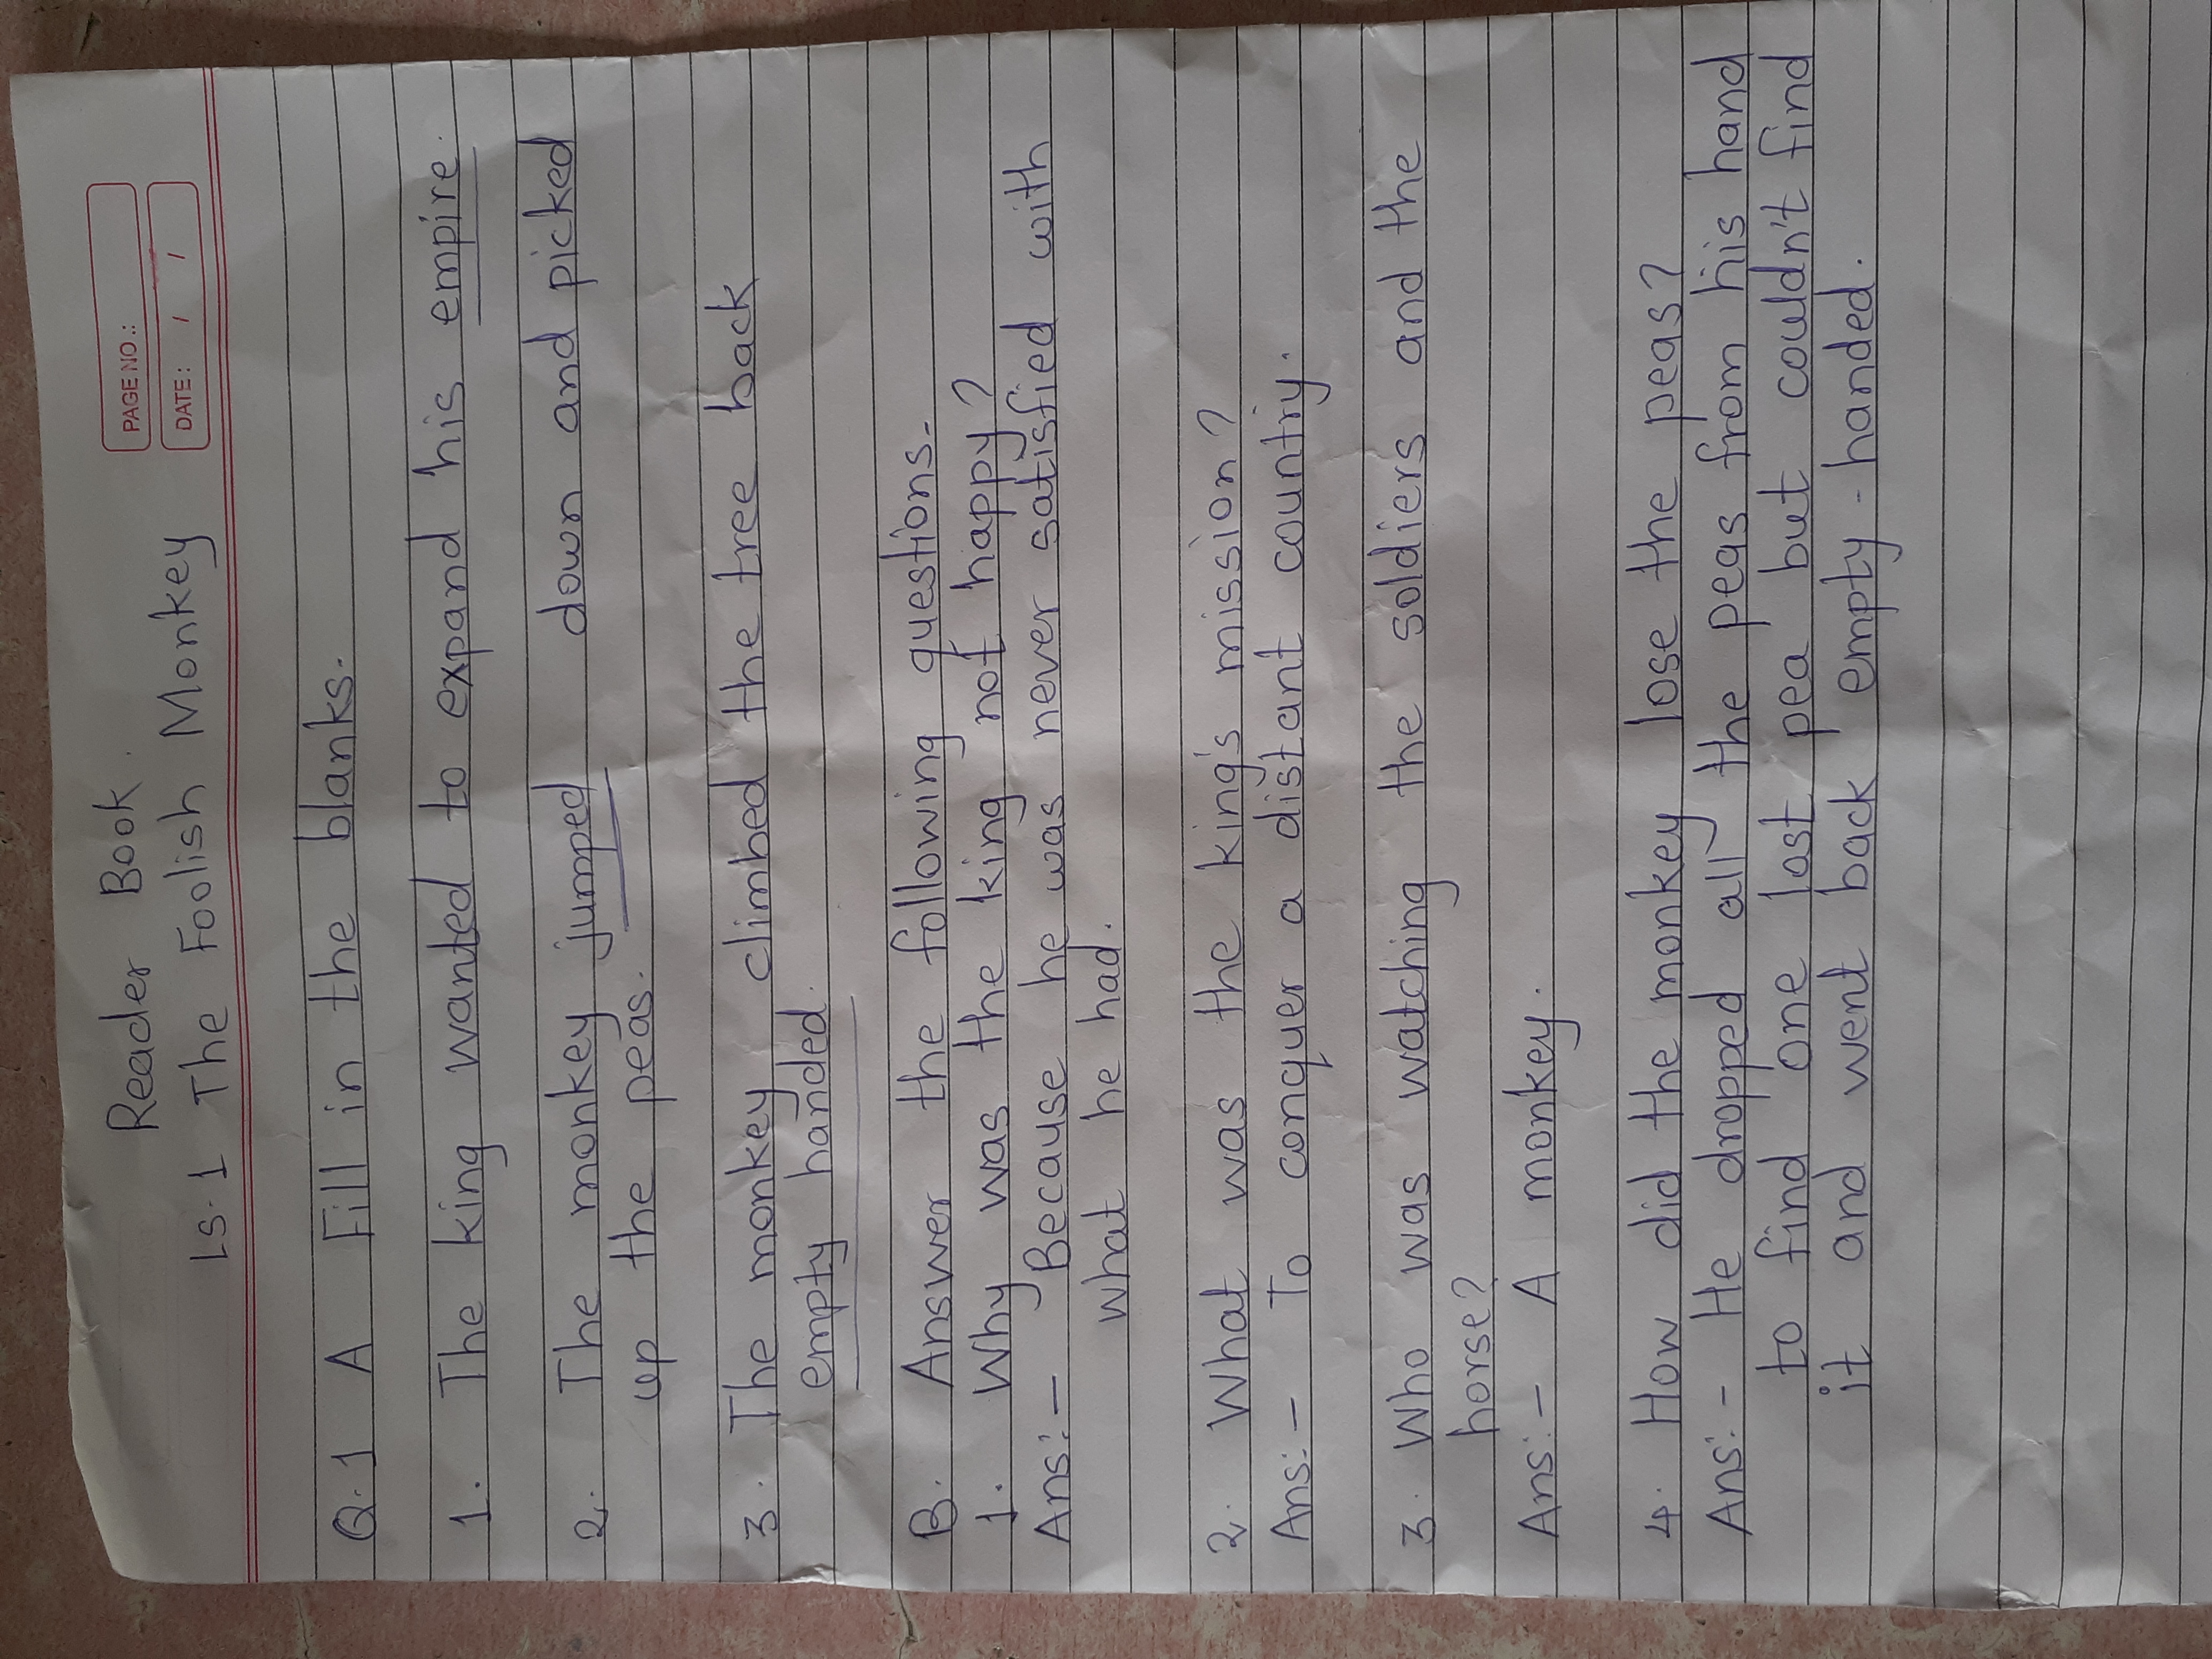 PAGE NO.:
DATE: / /
Reader Book.
Ls.1 The Foolish Monkey
Q.1 A Fill in the blanks.
1. The king wanted to expand his empire.
2. The monkey jumped down and picked
up the peas.
3. The monkey climbed the tree back
empty handed.
B. Answer the following questions.
1. Why was the king not happy?
Ans:- Because he was never satisfied with
what he had.
2. What was the king's mission?
Ans:- To conquer a distant country.
3. Who was watching the soldiers and the
horse?
Ans:- A monkey.
4. How did the monkey lose the peas?
Ans:- He dropped all the peas from his hand
to find one last pea but couldn't find
it and went back empty-handed.